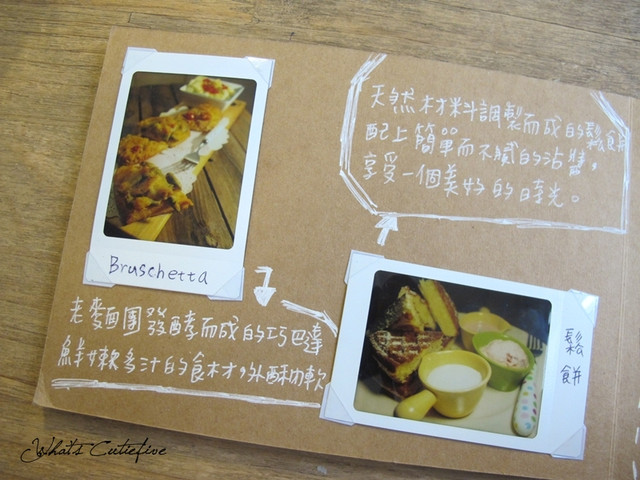 天然材料調製而成的鬆餅
配上簡單而不膩的沾醬，
享受一個美好的時光。
Bruschetta
老麥面團發酵而成的巧巴達
鮮嫩多汁的食材，外酥內軟
鬆餅
What's Cutiefive